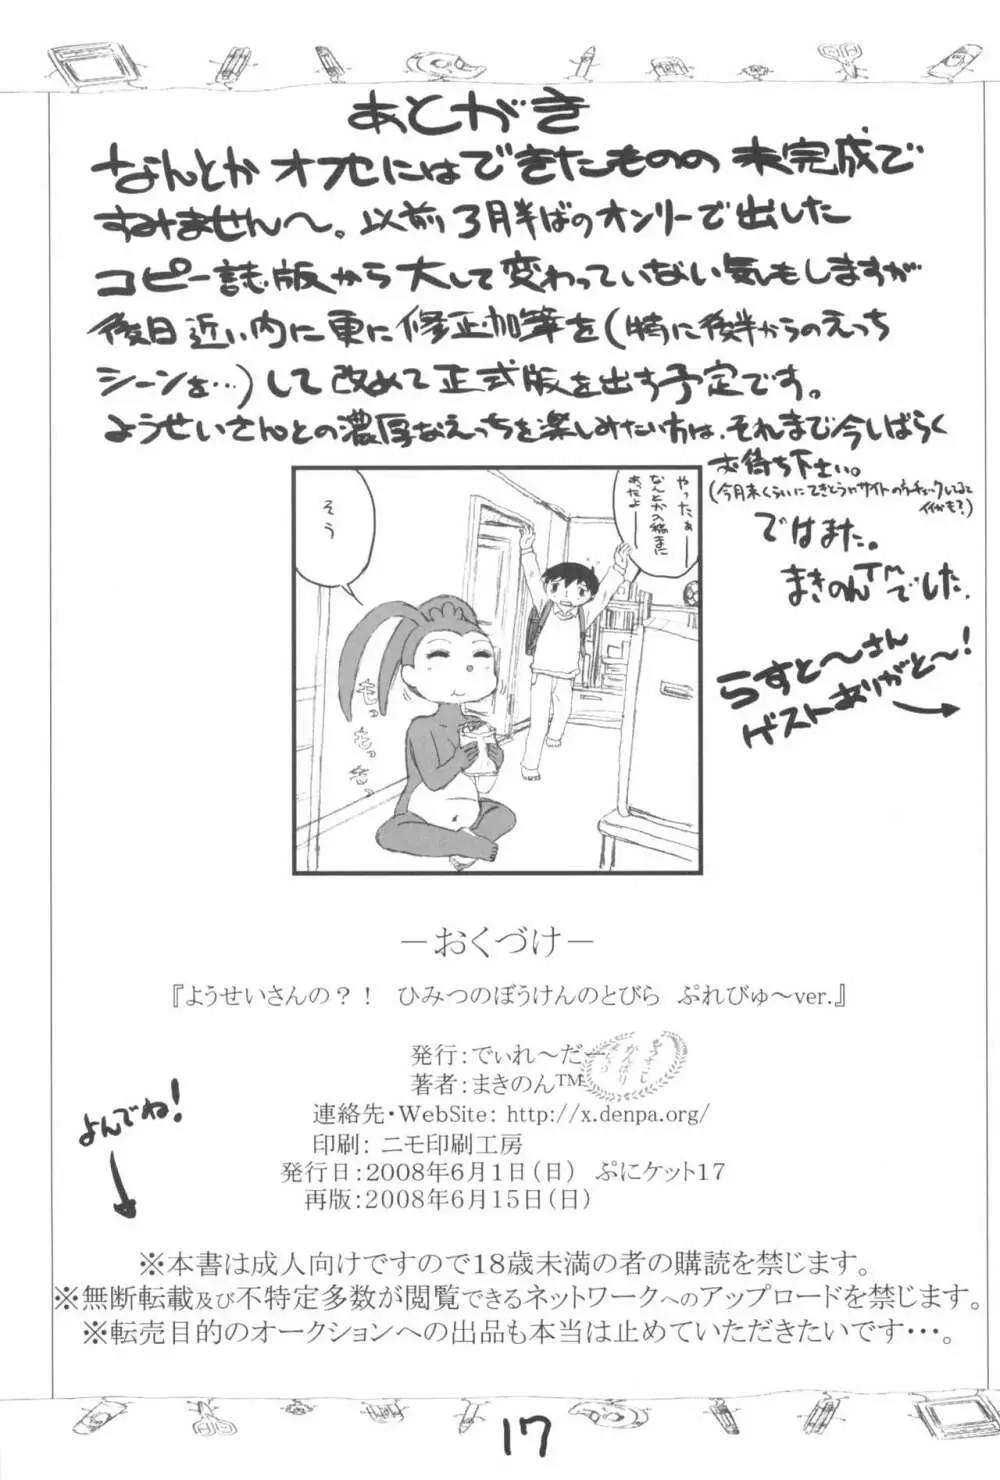 あとがき
なんとかオフセにはできたものの未完成で
すみません～。以前3月半ばのオンリーで出した
コピー誌版から大して変わっていない気もしますが
後日近い内に更に修正加筆を(特に後半からのえっち
シーンを…)して改めて正式版を出す予定です。
ようせいさんとの濃厚なえっちを楽しみたい方は、それまで今しばらく
お待ち下さい。
(今月末くらいにてきとうにサイトの方チェックしてると
イイかも?)
ではまた。
まきのんTMでした。
らすと～さん
ゲストありがと～!
やったぁー
なんとか入稿まに
あったよー
そう
もっ
もっ
もっ
－おくづけ－
『ようせいさんの？！　ひみつのぼうけんのとびら　ぷれびゅ～ver.』
発行：でぃれ～だー
著者：まきのん™
連絡先・WebSite: http://x.denpa.org/
印刷：ニモ印刷工房
発行日：2008年6月1日（日）　ぷにケット17
再版：2008年6月15日（日）
よんでね!
※本書は成人向けですので18歳未満の者の購読を禁じます。
※無断転載及び不特定多数が閲覧できるネットワークへのアップロードを禁じます。
※転売目的のオークションへの出品も本当は止めていただきたいです・・・。
17